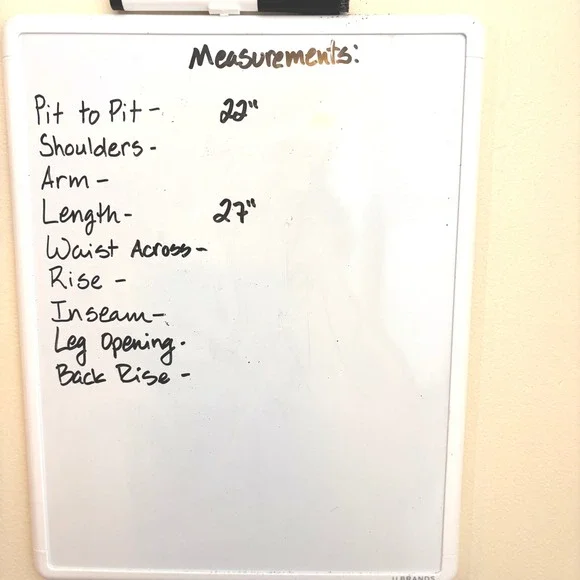 Measurements:
Pit to Pit - 22"
Shoulders -
Arm -
Length - 27"
Waist Across -
Rise -
Inseam -
Leg Opening -
Back Rise -
U BRANDS